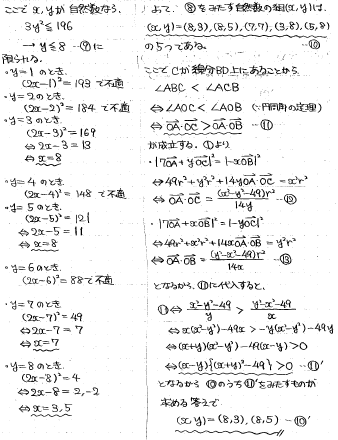 ここで x, yが自然数なら、
3y² ≦ 196
→ y ≦ 8 …⑨に
限られる。
・y=1のとき
(2x-1)² = 193 で不適
・y=2のとき
(2x-2)² = 184 で不適
・y=3のとき
(2x-3)² = 169
⇔ 2x-3 = 13
⇔ x=8
・y=4のとき
(2x-4)² = 148 で不適
・y=5のとき
(2x-5)² = 121
⇔ 2x-5 = 11
⇔ x=8
・y=6のとき
(2x-6)² = 88で不適
・y=7のとき
(2x-7)² = 49
⇔ 2x-7 = 7
⇔ x=7
・y=8のとき
(2x-8)² = 4
⇔ 2x-8 = 2, -2
⇔ x=3, 5
よって、⑧をみたす自然数の組(x, y)は、
(x, y) = (8,3), (8,5), (7,7), (3,8), (5,8)
の5つである。 …⑩
ここで Cが線分BD上にあることから
∠ABC < ∠ACB
⇔ ∠AOC < ∠AOB (∵円周角の定理)
⇔ OA・OC > OA・OB …⑪
が成立する。①より
・|7OA + yOC|² = |-xOB|²
⇔ 49r² + y²r² + 14yOA・OC = x²r²
⇔ OA・OC = (x²-y²-49)r² / 14y …⑫
・|7OA + xOB|² = |-yOC|²
⇔ 49r² + x²r² + 14xOA・OB = y²r²
⇔ OA・OB = (y²-x²-49)r² / 14x …⑬
となるから、⑪に代入すると、
⑪ ⇔ x²-y²-49 / y > y²-x²-49 / x
⇔ x(x²-y²) - 49x > -y(x²-y²) - 49y
⇔ (x+y)(x²-y²) - 49(x-y) > 0
⇔ (x-y){(x+y)²-49} > 0 …⑪'
となるから ⑩のうち⑪'をみたすものが
求める答えで
(x, y) = (8,3), (8,5) …⑩'